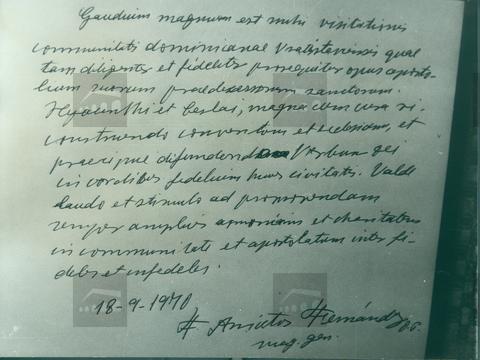 Gaudium magnum est mihi visitationis
communitatis dominicanae Vratislavensis quae
tam diligenter et fideliter prosequitur opus aposto-
licum suorum praedecessorum sanctorum
Hyacinthi et Ceslai, magna cum cura re-
construendo conventum et ecclesiam, et
praecipue difundendo Verbum Dei
in cordibus fidelium huius civitatis. Valde
laudo et stimulo ad promovendam
semper amplius armoniam et charitatem
in communitate et apostolatum inter fi-
deles et infedeles.
18-9-1970,
Fr Anicetus Fernández O.P.
mag. gen.